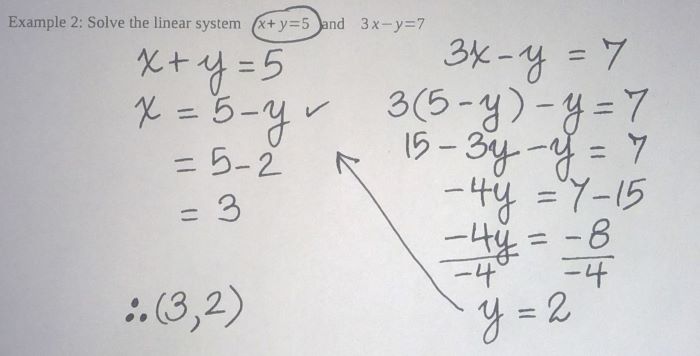 Example 2: Solve the linear system x+y=5 and 3x−y=7
x+y=5
x = 5-y ✓
= 5-2
= 3
∴ (3,2)
3x-y = 7
3(5-y)-y=7
15-3y-y = 7
-4y = 7-15
-4y = -8
-4 -4
y = 2